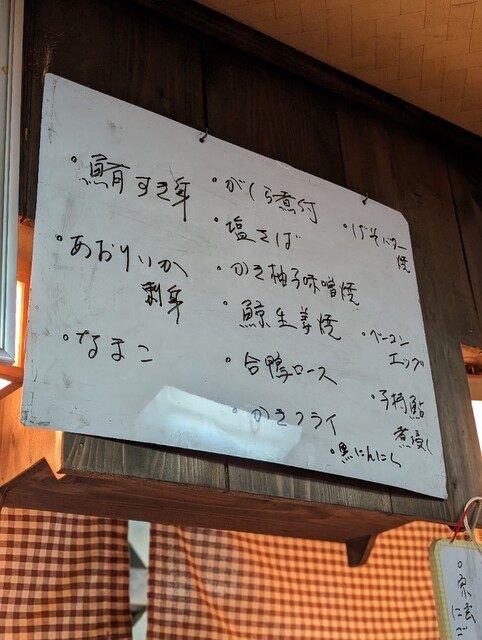 ・鮪すき身
・あおりいか
刺身
・なまこ
・がしら煮付
・塩さば
・かき柚子味噌焼
・鯨生姜焼
・合鴨ロース
・かきフライ
・黒にんにく
・げそバター
焼
・ベーコン
エッグ
・子持鮎
煮浸し